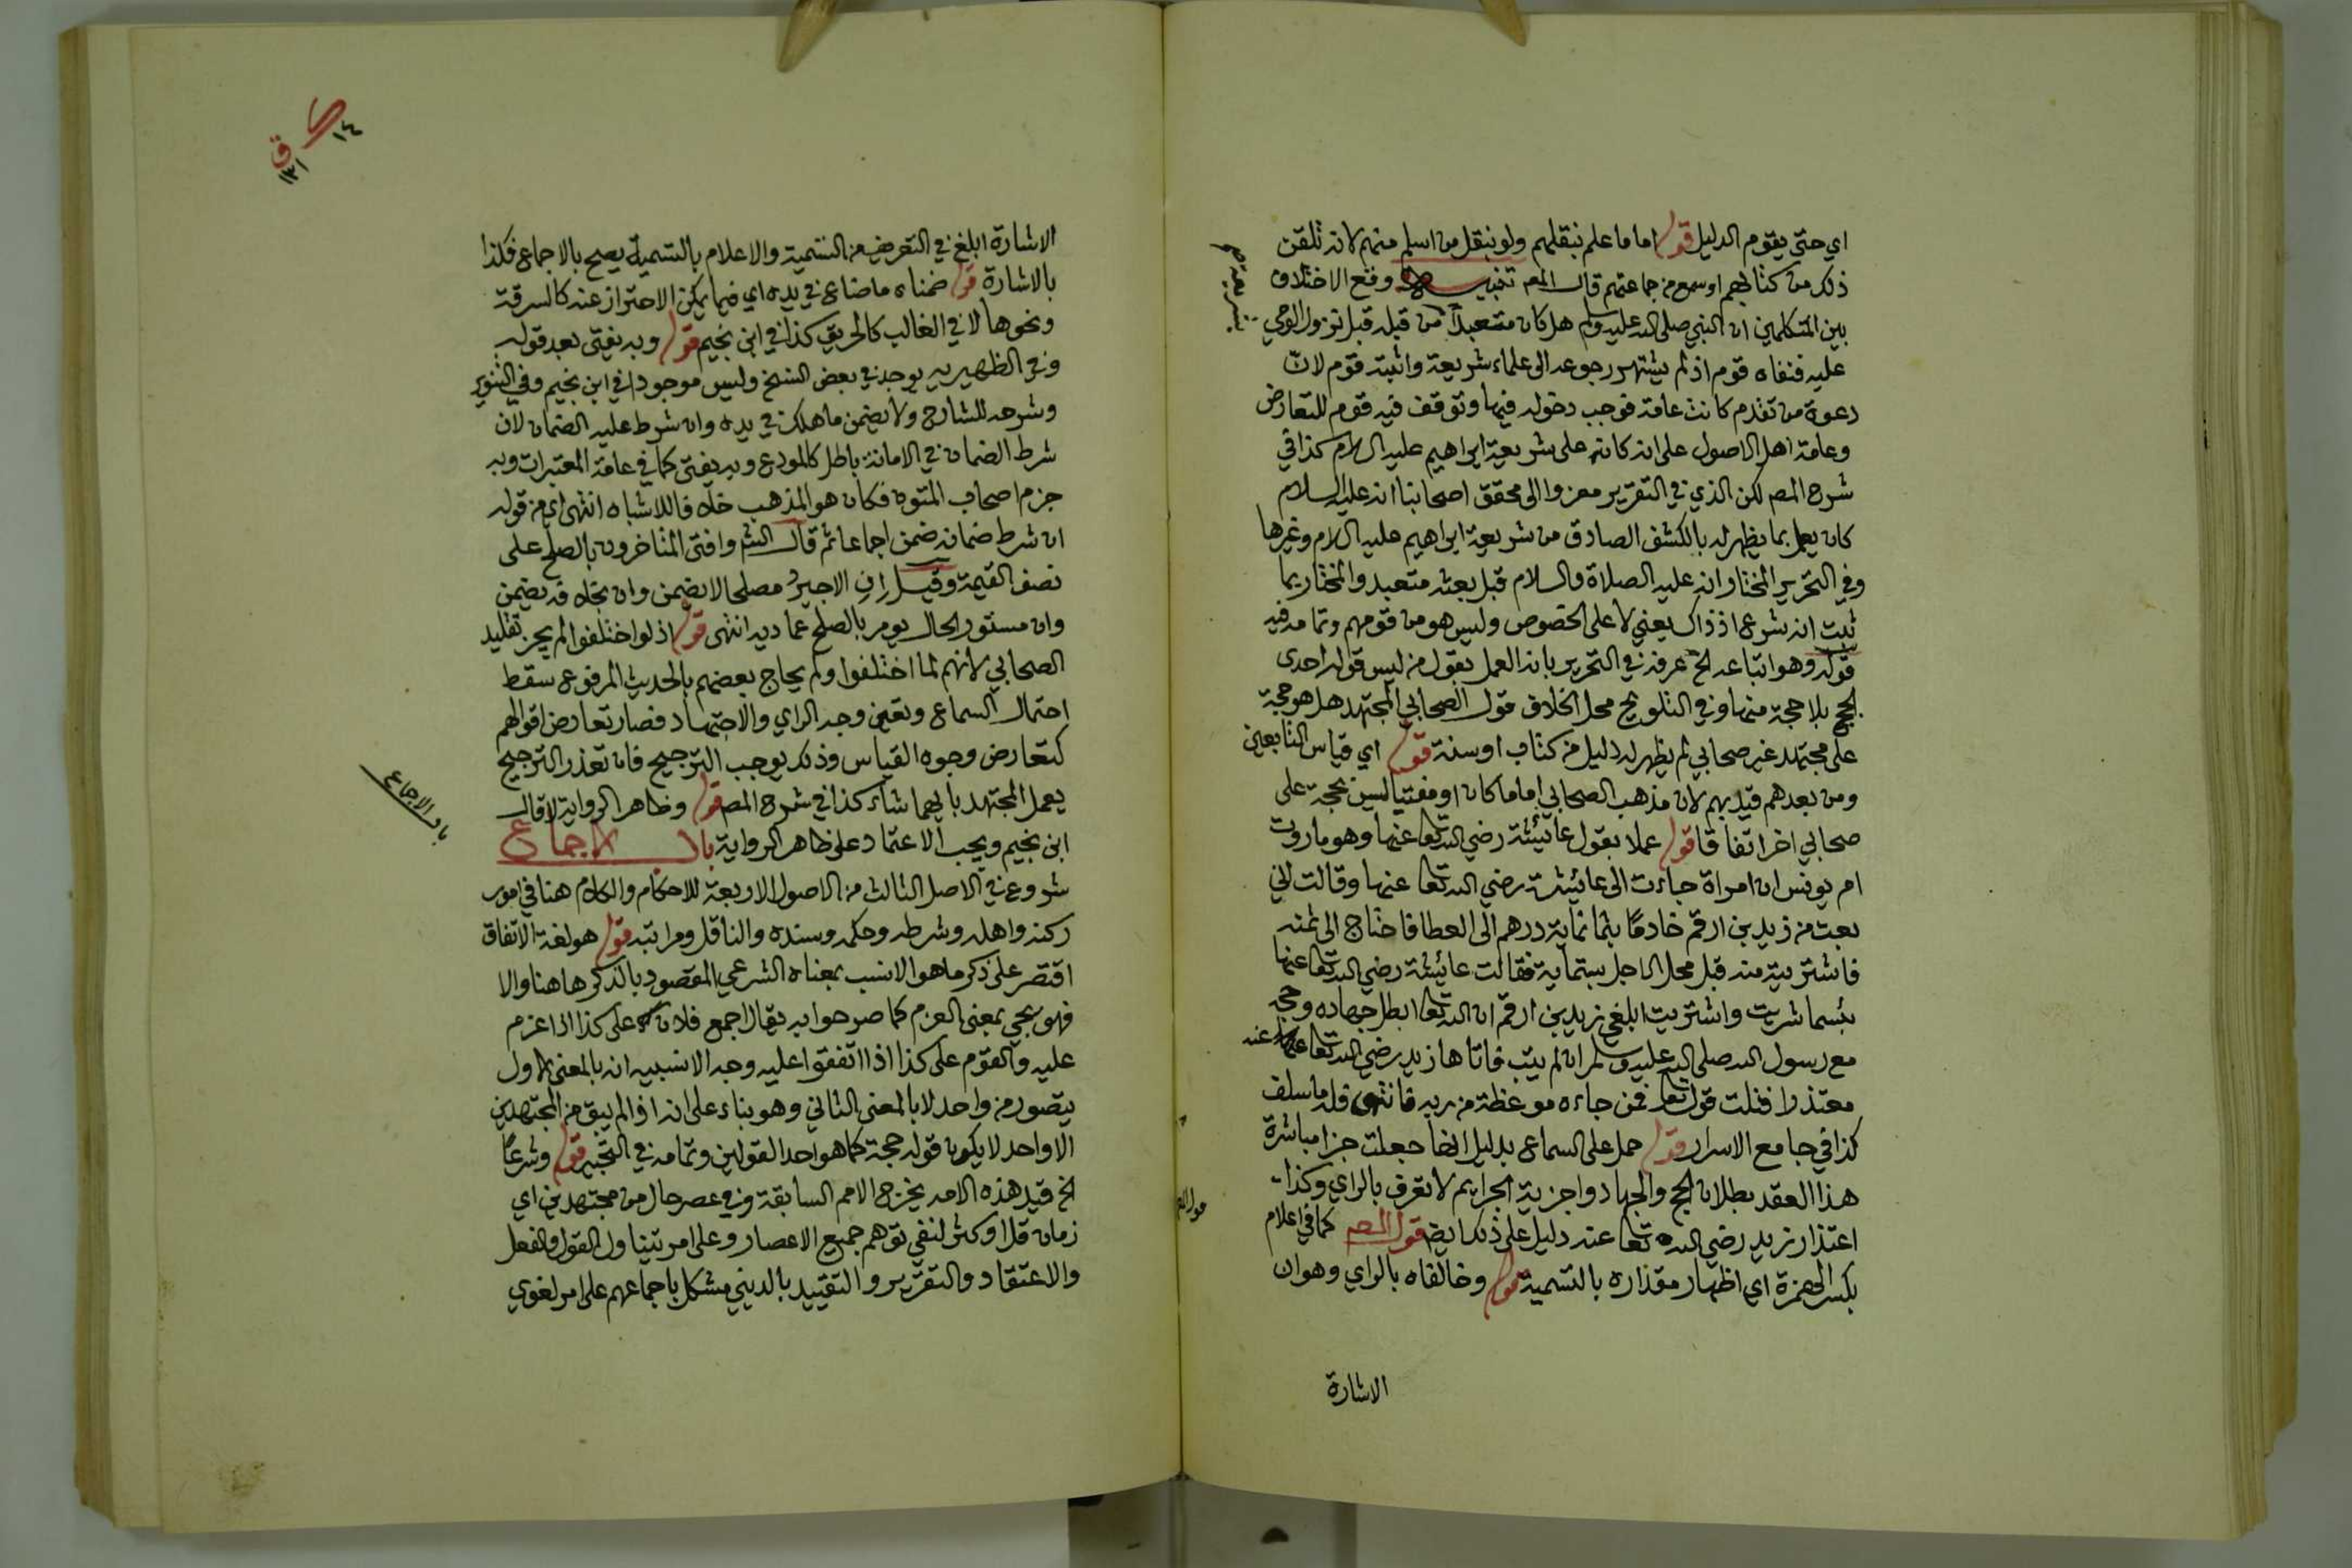 اي حتى يقوم الدليل قوله اما ما علم بنقلهم ولو بنقل من اسلم منهم لانه تلقن
ذلك من كتابهم او سمع من جماعتهم قال المص تنبيه وقع الاختلاف
بين المتكلمين ان النبي صلى الله عليه وسلم هل كان متعبدا من قبله قبل نزول الوحي
عليه فنفاه قوم اذ لم يشتهر رجوعه الى علماء شريعة واثبته قوم لان
دعوة من تقدم كانت عامة فوجب دخوله فيها وتوقف فيه قوم للتعارض
وعامة اهل الاصول على انه كان على شريعة ابراهيم عليه السلام كذا في
شرح المص لكن الذي في التقرير معزوا الى محقق اصحابنا انه عليه السلام
كان يعمل بما يظهر له بالكشف الصادق من شريعة ابراهيم عليه السلام وغيرها
وفي التحرير المختار انه عليه الصلاة والسلام قبل بعثه متعبد والمختار بما
ثبت انه شرع اذ ذاك يعني لا على الخصوص وليس هو من قومهم وتمامه فيه
قوله وهو اتباعه الخ عرفه في التحرير بانه العمل بقول من ليس قوله احدى
الحجج بلا حجة منها وفي التلويح محل الخلاف قول الصحابي المجتهد هل هو حجة
على مجتهد غير صحابي لم يظهر له دليل من كتاب او سنة قوله اي قياس التابعين
ومن بعدهم قيد بهم لان مذهب الصحابي اماما كان او مفتيا ليس بحجة على
صحابي اخر اتفاقا قوله عملا بقول عائشة رضي الله تعا عنها وهو ما روت
ام يونس ان امراة جاءت الى عائشة رضي الله تعا عنها وقالت اني
بعت من زيد بن ارقم خادما بثمانماية درهم الى العطا فاحتاج الى ثمنه
فاشتريته منه قبل محل الاجل بستماية فقالت عائشة رضي الله تعا عنها
بئسما شريت واشتريت ابلغي زيد بن ارقم ان الله تعا ابطل جهاده وحجه
مع رسول الله صلى الله عليه وسلم ان لم يتب فاتاها زيد رضي الله تعا عنه
معتذرا فتلت قوله تعا فمن جاءه موعظة من ربه فانتهى فله ما سلف
كذا في جامع الاسرار قوله حمل على السماع بدليل انها جعلت جزا مباشرة
هذا العقد بطلان الحج والجهاد واجزية الجرايم لا تعرف بالراي وكذا
اعتذار زيد رضي الله تعا عنه دليل على ذلك ايضا قول المص كما في اعلام
بكسر الهمزة اي اظهار مقداره بالتسمية قوله وخالفاه بالراي وهو ان
الاشارة
١٤
ق
١٣١
الاشارة ابلغ في التعريف من التسمية والاعلام بالتسمية يصح بالاجماع فكذا
بالاشارة قوله ضمناه ما ضاع في يده اي فيما يمكن الاحتراز عنه كالسرقة
ونحوها لا في الغالب كالحريق كذا في ابن نجيم قوله وبه يفتى بعد قوله
وفي الظهيريه يوجد في بعض النسخ وليس موجودا في ابن نجيم وفي التنوير
وشرحه للشارح ولا يضمن ما هلك في يده وان شرط عليه الضمان لان
شرط الضمان في الامانة باطل كالمودع وبه يفتى كما في عامة المعتبرات وبه
جزم اصحاب المتون فكان هو المذهب خلافا للاشباه انتهى اي من قوله
ان شرط ضمانه ضمن اجماعا ثم قال الش وافتى المتاخرون بالصلح على
نصف القيمة وقيل ان الاجير مصلحا لا يضمن وان بخلافه يضمن
وان مستور الحال يومر بالصلح عماديه انتهى قوله اذ لو اختلفوا لم يجز تقليد
الصحابي لانهم لما اختلفوا ولم يحاج بعضهم بالحديث المرفوع سقط
احتمال السماع وتعين وجه الراي والاجتهاد فصار تعارض اقوالهم
كتعارض وجوه القياس وذلك يوجب الترجيح فان تعذر الترجيح
يعمل المجتهد بايهما شاء كذا في شرح المص قوله وظاهر الرواية لا قال
ابن نجيم ويجب الاعتماد على ظاهر الرواية باب الاجماع
شروع في الاصل الثالث من الاصول الاربعة للاحكام والكلام هنا في امور
ركنه واهله وشرطه وحكمه وسنده والناقل ومراتبه قوله هو لغة الاتفاق
اقتصر على ذكر ما هو الانسب بمعناه الشرعي المقصود بالذكر هاهنا والا
فهو يجي بمعنى العزم كما صرحوا به يقال اجمع فلان على كذا اذا عزم
عليه والقوم على كذا اذا اتفقوا عليه وجه الانسبيه انه بالمعنى الاول
يتصور من واحد لا بالمعنى الثاني وهو بناء على انه اذا لم يبق من المجتهدين
الا واحد لا يكون قوله حجة كما هو احد القولين وتمامه في التحبير قوله وشرعا
الخ قيد هذه الامه يخرج الامم السابقة وفي عصر حال من مجتهدين اي
زمان قل او كثر لنفي توهم جميع الاعصار وعلى امر يتناول القول والفعل
والاعتقاد والتقرير والتقييد بالديني مشكل باجماعهم على امر لغوي
باب الاجماع